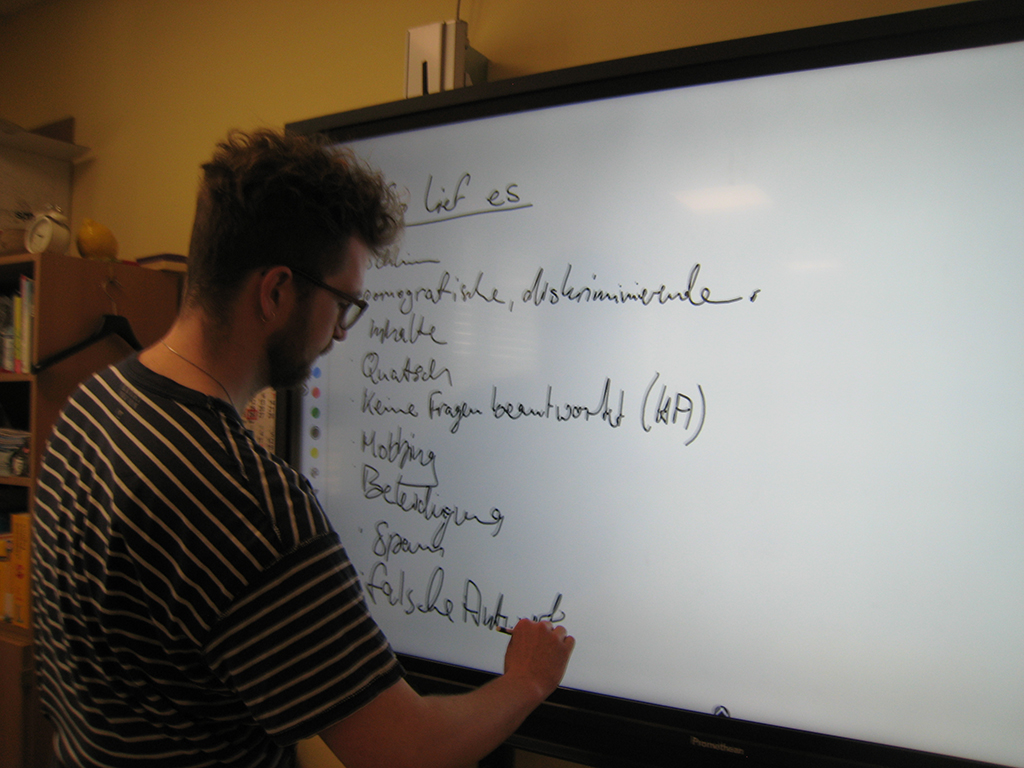 lief es
pornografische, diskriminierende
Inhalte
Quatsch
Keine Fragen beantwortet (HA)
Mobbing
Beleidigung
Spam
falsche Antwort
Promethean